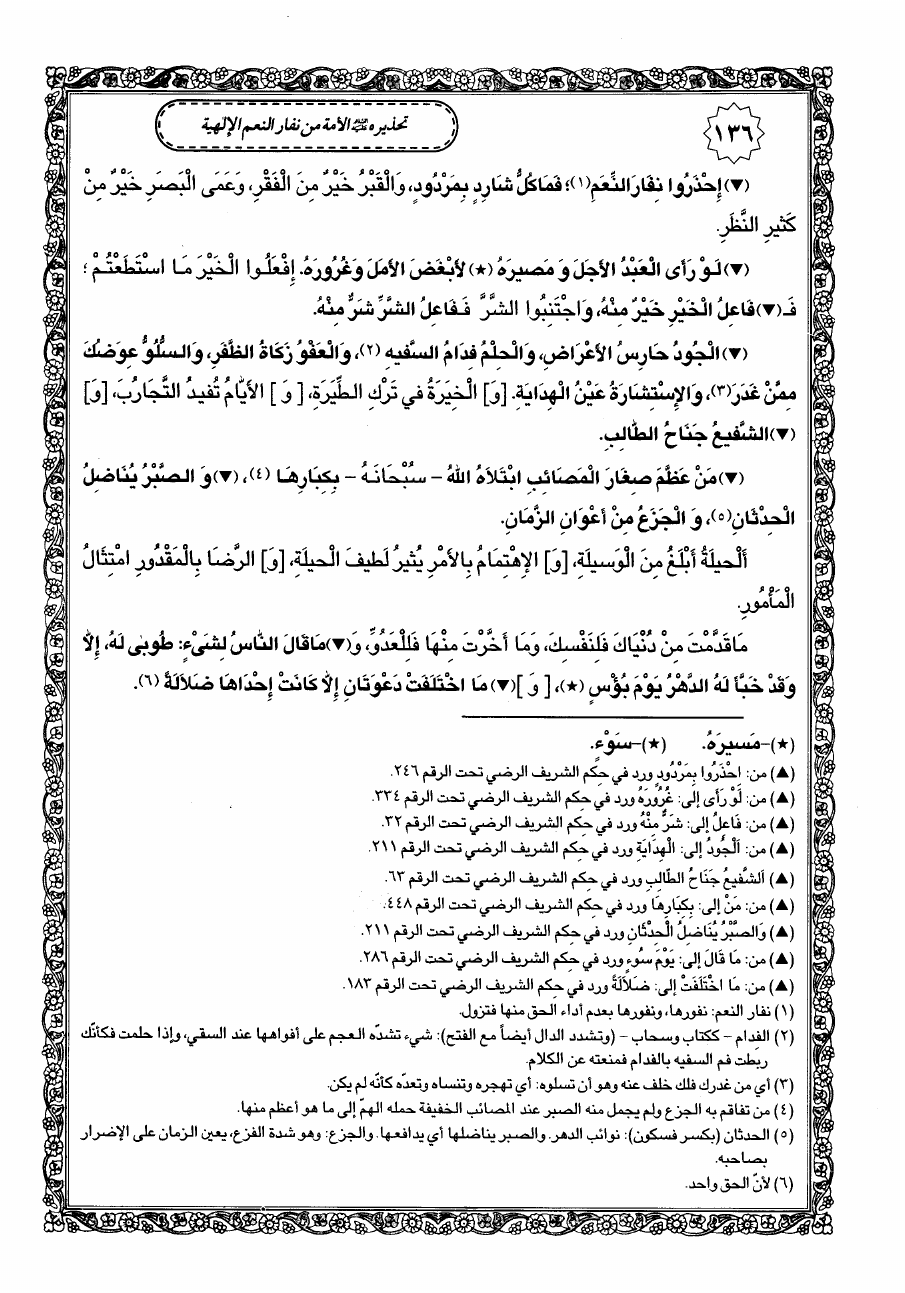 ١٣٦
تحذيره ﷺ الأمة من نفار النعم الإلهية
(▼) إِحْذَرُوا نِفَارَ النِّعَمِ(١)؛ فَمَا كُلُّ شَارِدٍ بِمَرْدُودٍ، وَالْقَبْرُ خَيْرٌ مِنَ الْفَقْرِ، وَعَمَى الْبَصَرِ خَيْرٌ مِنْ
كَثيرِ النَّظَرِ.
(▼) لَوْ رَأى الْعَبْدُ الأَجَلَ وَ مَصيرَهُ (★) لأَبْغَضَ الأَمَلَ وَغُرُورَهُ. إِفْعَلُوا الْخَيْرَ مَا اسْتَطَعْتُمْ ؛
فَـ(▼)فَاعِلُ الْخَيْرِ خَيْرٌ مِنْهُ، وَاجْتَنِبُوا الشَّرَّ فَفَاعِلُ الشَّرِّ شَرٌّ مِنْهُ.
(▼) الْجُودُ حَارِسُ الأَعْرَاضِ، وَالْحِلْمُ فِدَامُ السَّفيهِ (٢)، وَالْعَفْوُ زَكَاةُ الظَّفَرِ، وَالسُّلُوُّ عِوَضُكَ
مِمَّنْ غَدَرَ(٣)، وَالإِسْتِشَارَةُ عَيْنُ الْهِدَايَةِ. [وَ] الْخِيَرَةُ في تَرْكِ الطِّيَرَةِ، [ وَ ] الأَيَّامُ تُفيدُ التَّجَارُبَ، [وَ]
(▼)الشَّفيعُ جَنَاحُ الطَّالِبِ.
(▼) مَنْ عَظَّمَ صِغَارَ الْمَصَائِبِ ابْتَلَاهُ اللهُ - سُبْحَانَهُ - بِكِبَارِهَا (٤)، (▼)وَ الصَّبْرُ يُنَاضِلُ
الْحِدْثَانَ(٥)، وَ الْجَزَعُ مِنْ أَعْوَانِ الزَّمَانِ.
أَلْحيلَةُ أَبْلَغُ مِنَ الْوَسيلَةِ، [وَ] الإِهْتِمَامُ بِالأَمْرِ يُثيرُ لَطيفَ الْحيلَةِ، [وَ] الرِّضَا بِالْمَقْدُورِ امْتِثَالُ
الْمَأْمُورِ.
مَا قَدَّمْتَ مِنْ دُنْيَاكَ فَلِنَفْسِكَ، وَمَا أَخَّرْتَ مِنْهَا فَلِلْعَدُوِّ، وَ(▼)مَا قَالَ النَّاسُ لِشَيْءٍ: طُوبى لَهُ، إِلاَّ
وَقَدْ خَبَّأَ لَهُ الدَّهْرُ يَوْمَ بُؤْسٍ (★)، [ وَ ](▼) مَا اخْتَلَفَتْ دَعْوَتَانِ إِلاَّ كَانَتْ إِحْدَاهَا ضَلاَلَةً (٦).
(★)-مَسيرَهُ. (★)-سَوْءٍ.
(▲) من: احْذَرُوا بِمَرْدُودٍ ورد في حِكم الشريف الرضي تحت الرقم ٢٤٦.
(▲) من: لَوْ رَأى إلى: غُرُورَهُ ورد في حكم الشريف الرضي تحت الرقم ٣٣٤.
(▲) من: فَاعِلُ إلى: شَرٌّ مِنْهُ ورد في حكم الشريف الرضي تحت الرقم ٣٢.
(▲) من: اَلْجُودُ إلى: الْهِدَايَةِ ورد في حِكم الشريف الرضي تحت الرقم ٢١١.
(▲) اَلشَّفيعُ جَنَاحُ الطَّالِبِ ورد في حكم الشريف الرضي تحت الرقم ٦٣.
(▲) من: مَنْ إلى: بِكِبَارِهَا ورد في حِكم الشريف الرضي تحت الرقم ٤٤٨.
(▲) وَالصَّبْرُ يُنَاضِلُ الْحِدْثَانَ ورد في حكم الشريف الرضي تحت الرقم ٢١١.
(▲) من: مَا قَالَ إلى: يَوْمَ سُوءٍ ورد في حكم الشريف الرضي تحت الرقم ٢٨٦.
(▲) من: مَا اخْتَلَفَتْ إلى: ضَلاَلَةً ورد في حكم الشريف الرضي تحت الرقم ١٨٣.
(١) نفار النعم: نفورها، ونفورها بعدم أداء الحق منها فتزول.
(٢) الفِدام - ككتاب وسحاب - (وتشدد الدال أيضاً مع الفتح): شيء تشدّه العجم على أفواهها عند السقي، وإذا حلمت فكأنّك
ربطت فم السفيه بالفدام فمنعته عن الكلام.
(٣) أي من غدرك فلك خلف عنه وهو أن تسلوه: أي تهجره وتنساه وتعدّه كأنّه لم يكن.
(٤) من تفاقم به الجزع ولم يجمل منه الصبر عند المصائب الخفيفة حمله الهمّ إلى ما هو أعظم منها.
(٥) الحدثان (بكسر فسكون): نوائب الدهر. والصبر يناضلها أي يدافعها. والجزع: وهو شدة الفزع، يعين الزمان على الإضرار
بصاحبه.
(٦) لأنّ الحق واحد.